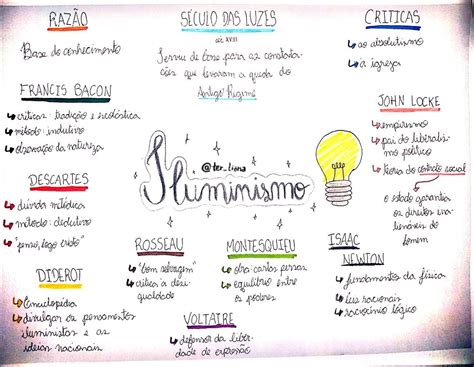 RAZÃO
Base do conhecimento
SÉCULO DAS LUZES
séc. XVIII
Serviu de base para as contesta-
ções que levaram a queda do
Antigo Regime
CRITICAS
ao absolutismo
a igreja
FRANCIS BACON
críticas: tradição e escolástica
método indutivo
observação da natureza
JOHN LOCKE
empirismo
pai do liberalis-
mo político
teoria do contrato social
o estado garantia
os direitos ina-
lienáveis do
homem
@ter_liana
Iluminismo
DESCARTES
dúvida metódica
método: dedutivo
"penso, logo existo"
ROSSEAU
"bom selvagem"
crítica à desi-
gualdade
MONTESQUIEU
obra: cartas persas
equilíbrio entre
os poderes
ISAAC
NEWTON
fundamentos da física
leis racionais
raciocínio lógico
DIDEROT
Enciclopédia
divulgar os pensamentos
iluministas e as
ideias racionais
VOLTAIRE
defensor da liber-
dade de expressão